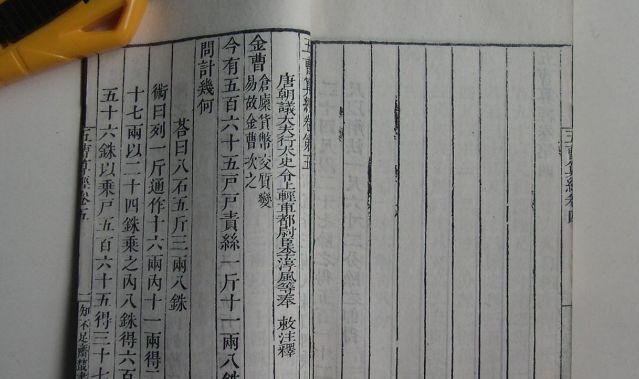 五曹算經卷四
五曹算經卷第五
唐朝議大夫行太史令上輕車都尉臣李淳風等奉 敕注釋
金曹
倉廩貨幣交質變
易故金曹次之
今有五百六十五戸戸責絲一斤十一兩八銖
問計幾何
荅曰八石五斤三兩八銖
術曰列一斤通作十六兩內十一兩得二
十七兩以二十四銖乘之內八銖得六百
五十六銖以乘戸五百六十五得三十七
五曹算經卷五
知不足齋叢書